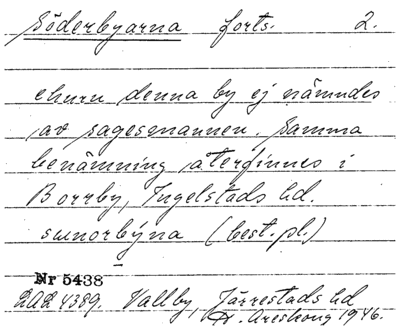 Söderbyarna forts. 2.
ehuru denna by ej nämndes
av sagesmannen. Samma
benämning återfinnes i
Borrby, Ingelstads hd.
sunorbýna (best. pl.)
Nr 5438
LAL 4389. Vallby, Järrestads hd
Areskoug 1946.